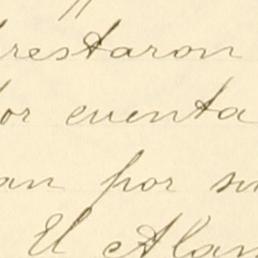 prestaron
por cuenta
an por su
El Alan